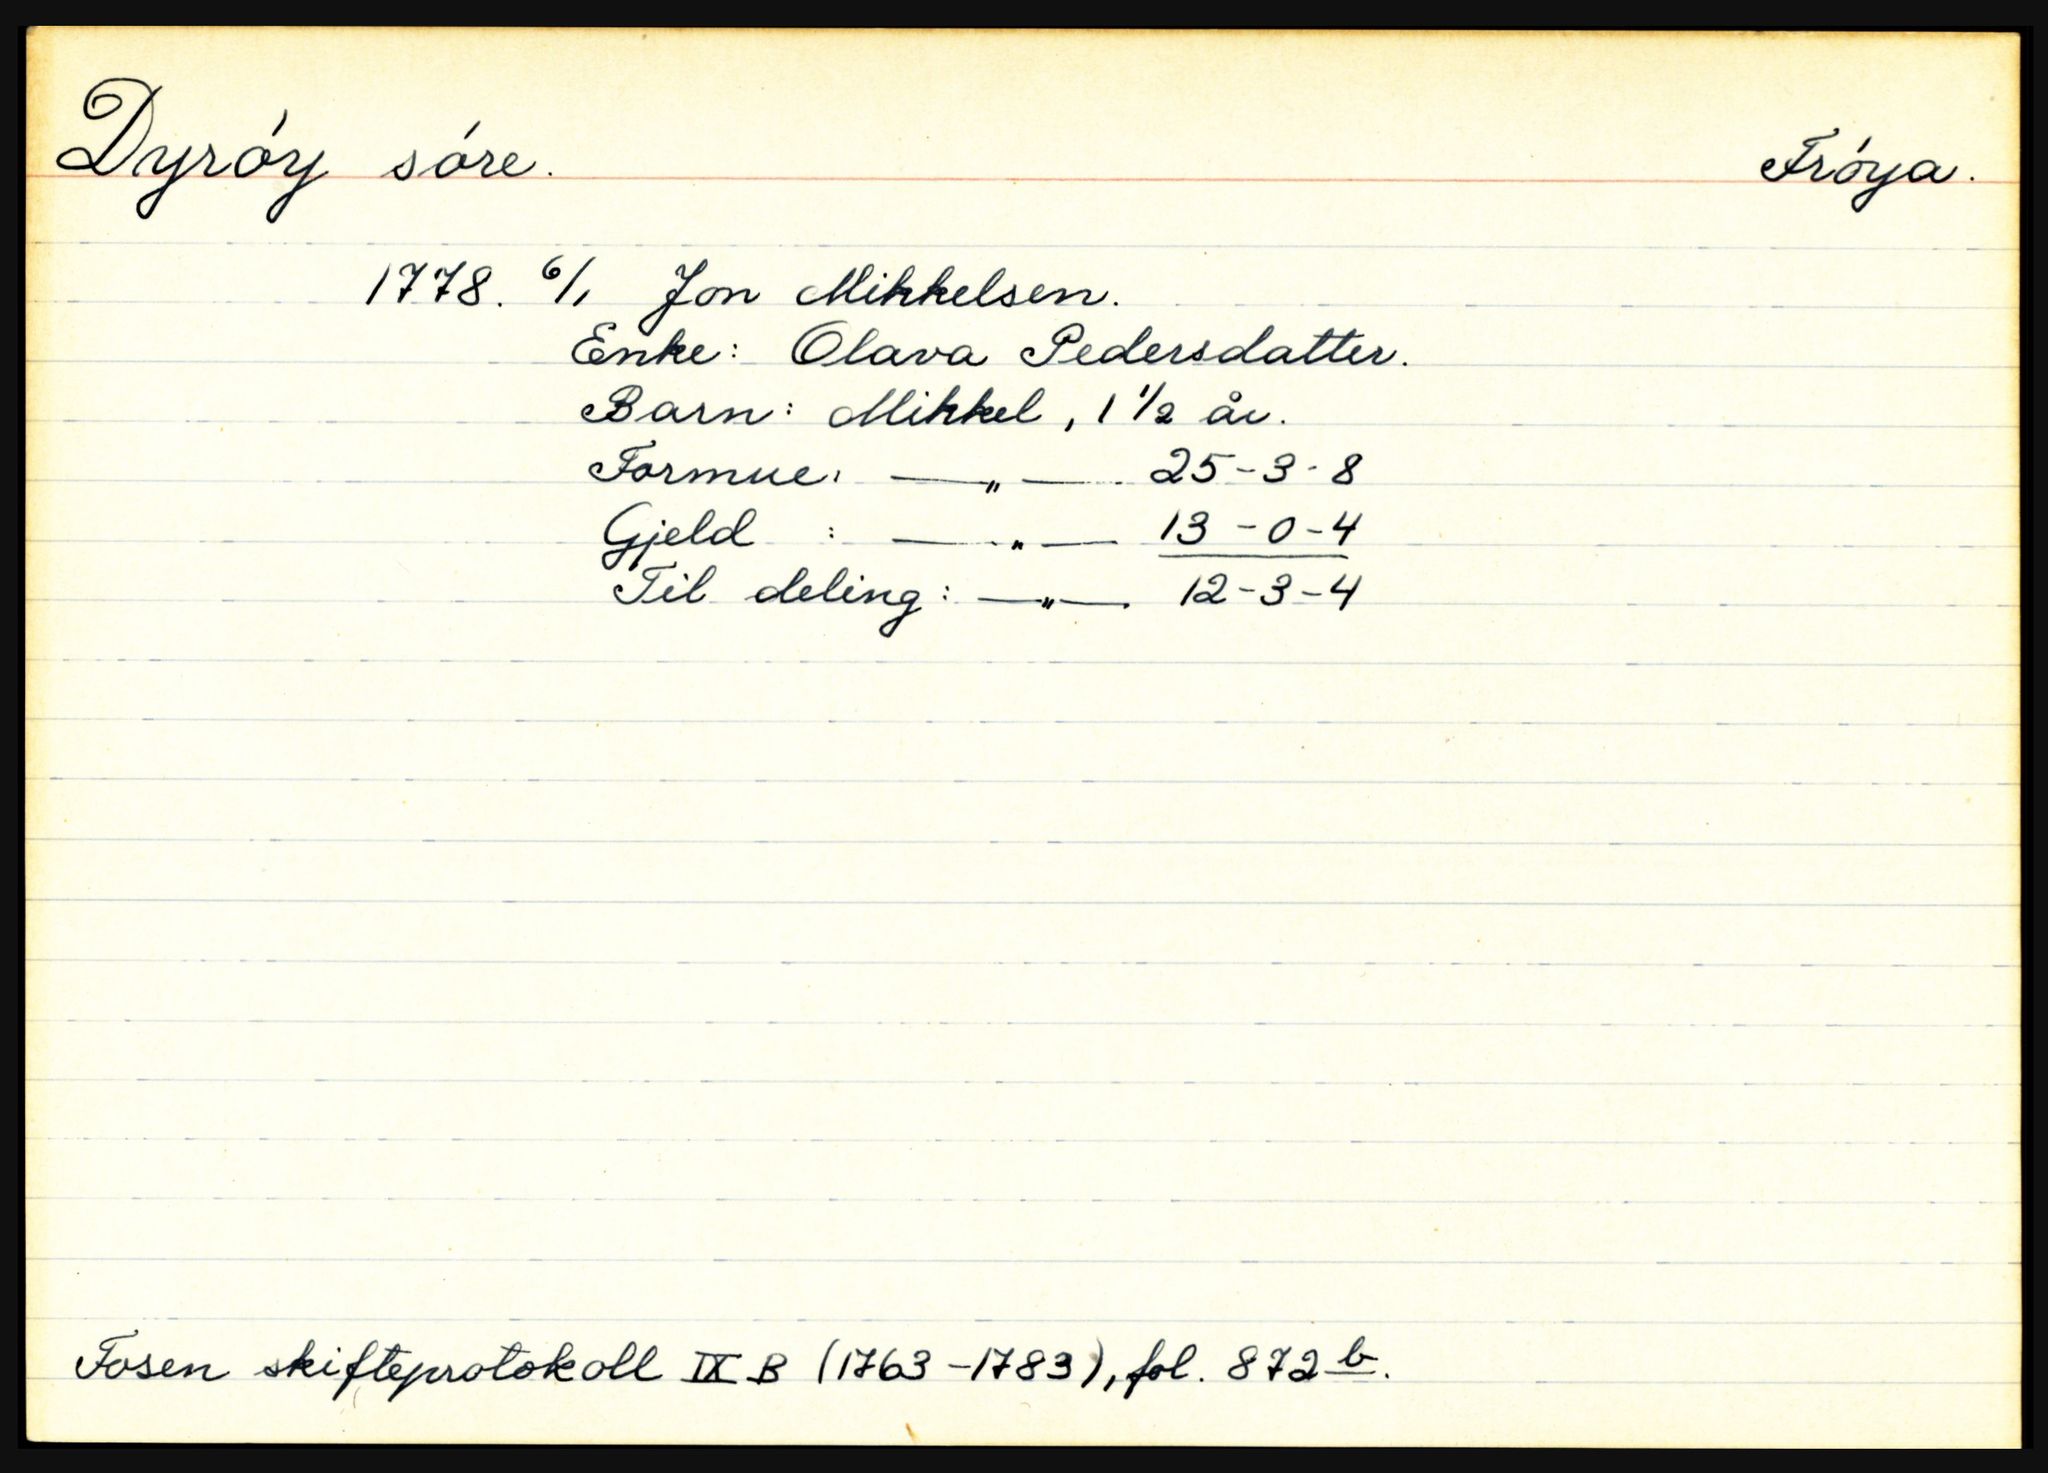 Dyróy sóre. Fróya.
1778. 6/1 Jon Mikkelsen.
Enke: Olava Pedersdatter.
Barn: Mikkel, 1 1/2 år.
Formue: —„— 25-3-8
Gjeld : —„— 13-0-4
Til deling: —„— 12-3-4
Fosen skifteprotokoll IX B (1763-1783), fol. 872 b.